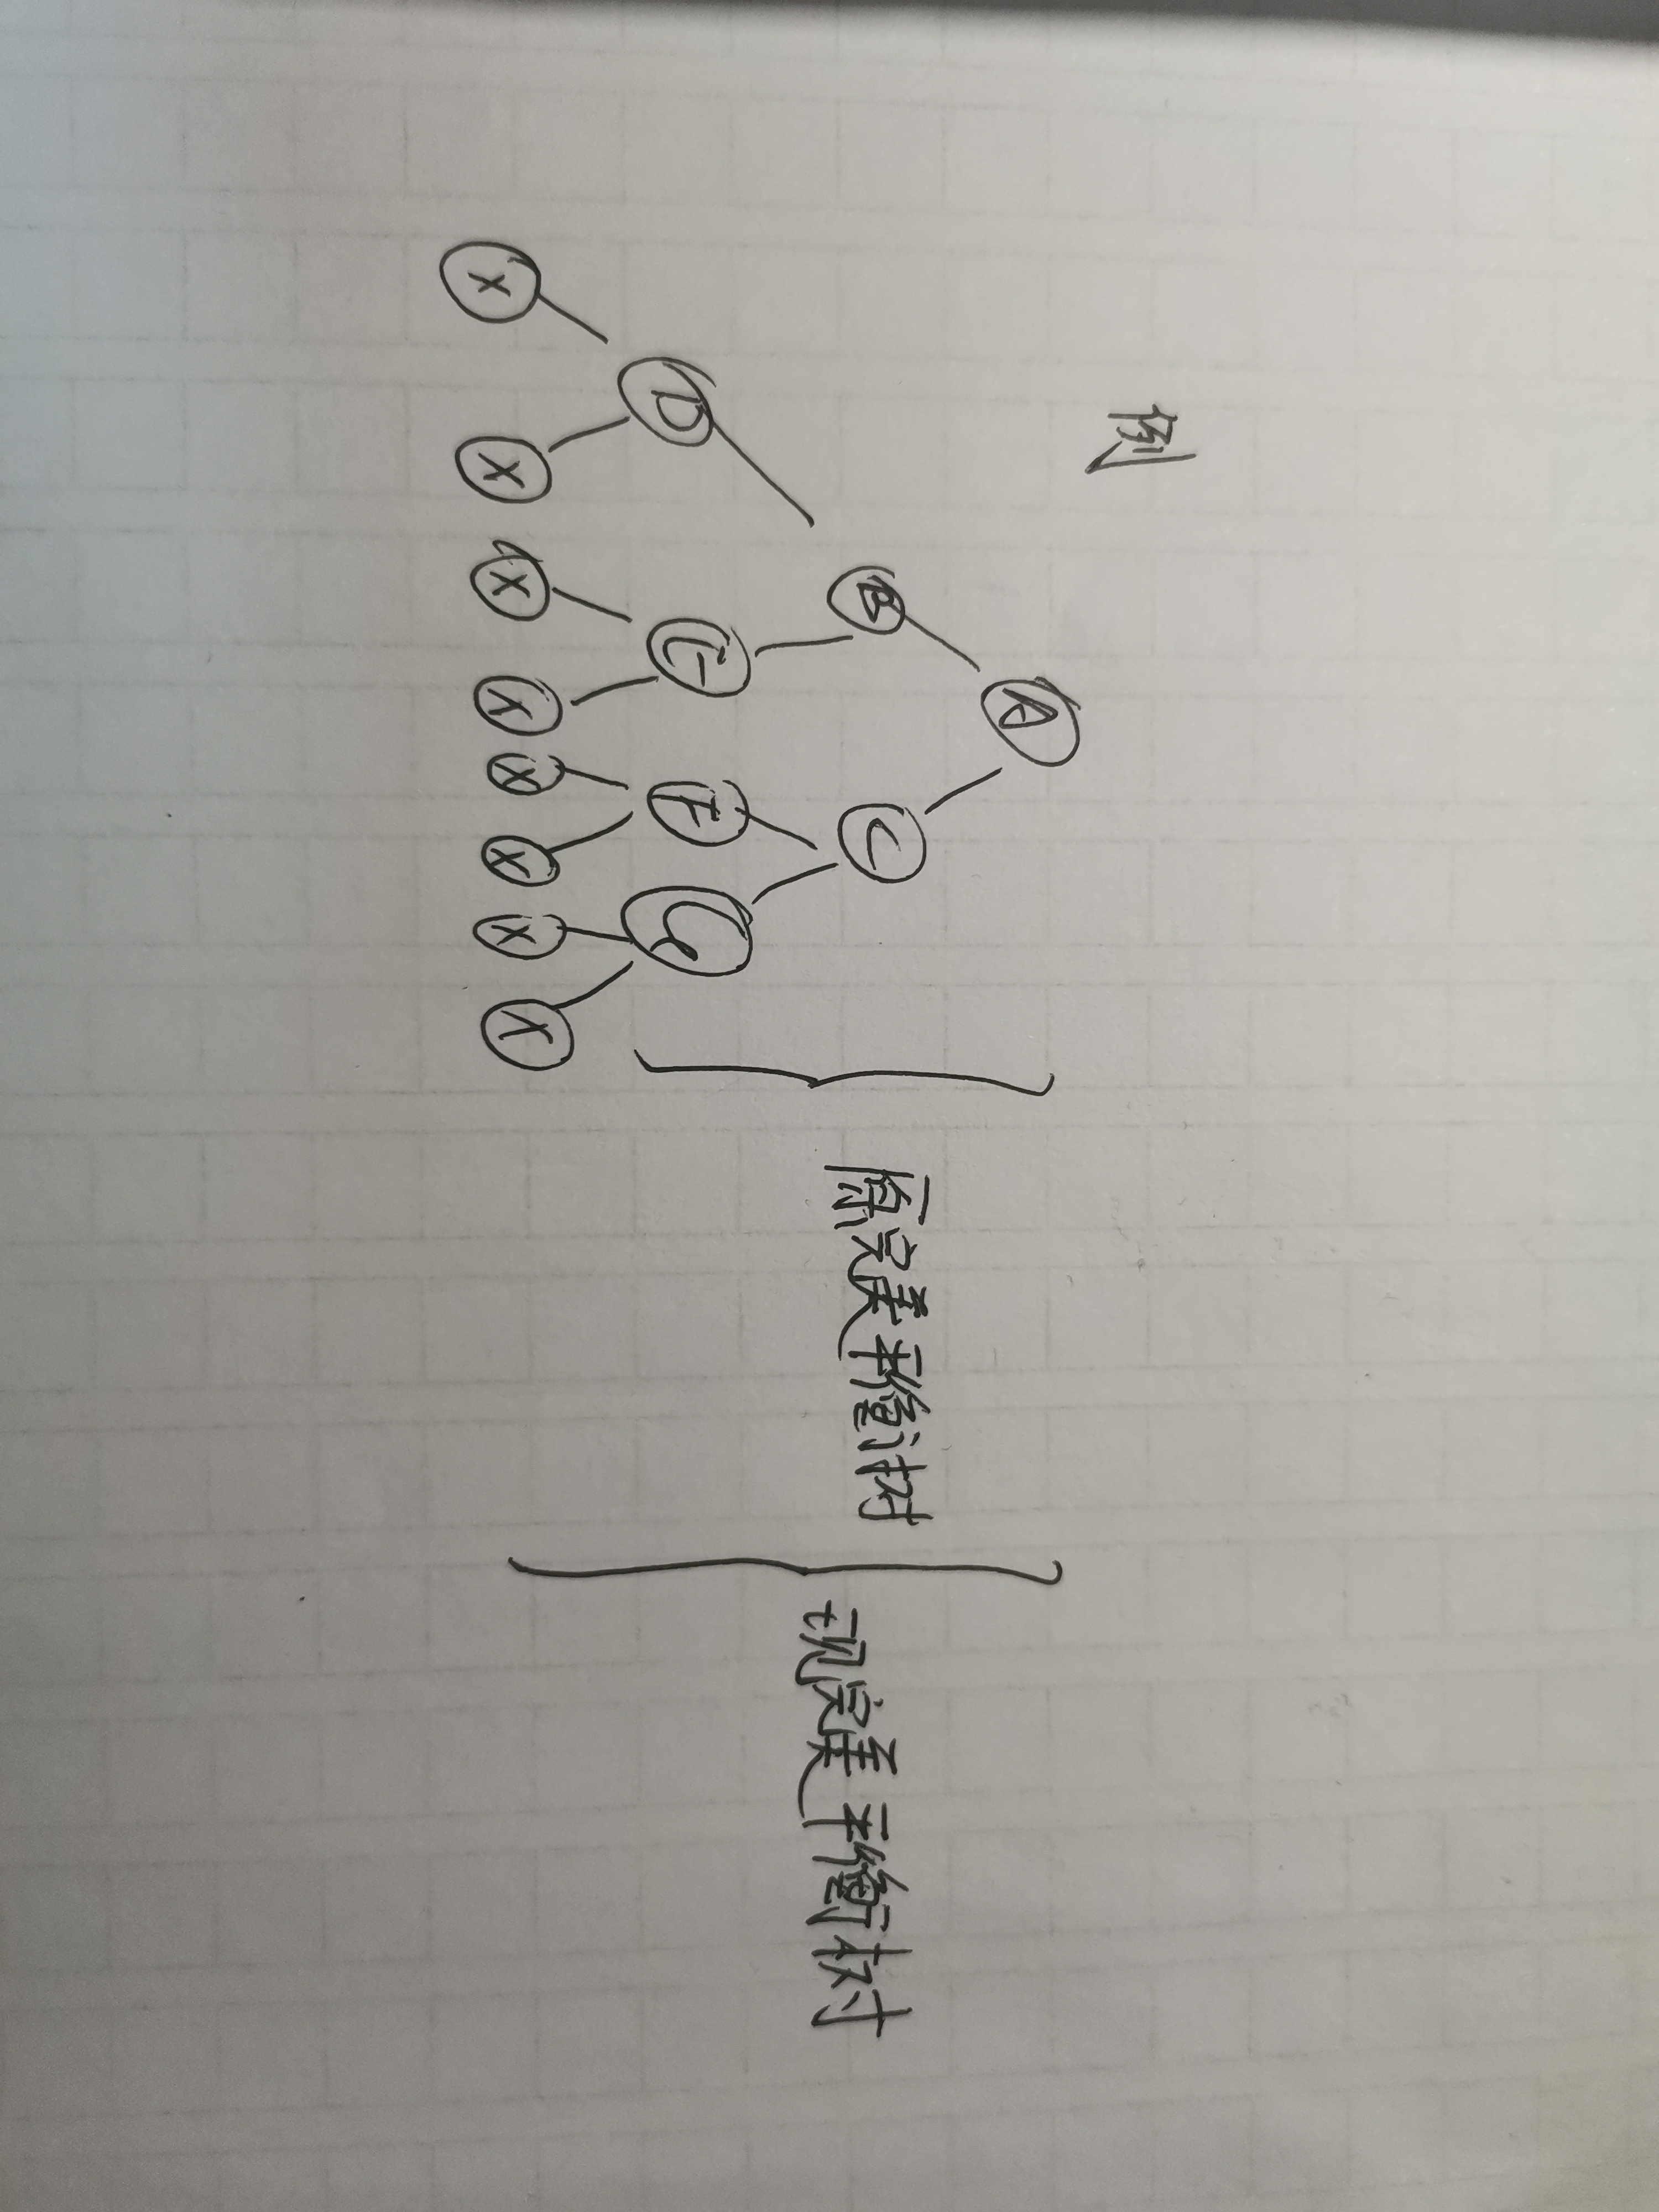 例
A
B C
D E F G
X X X X X X X X
原完美平衡树
现完美平衡树